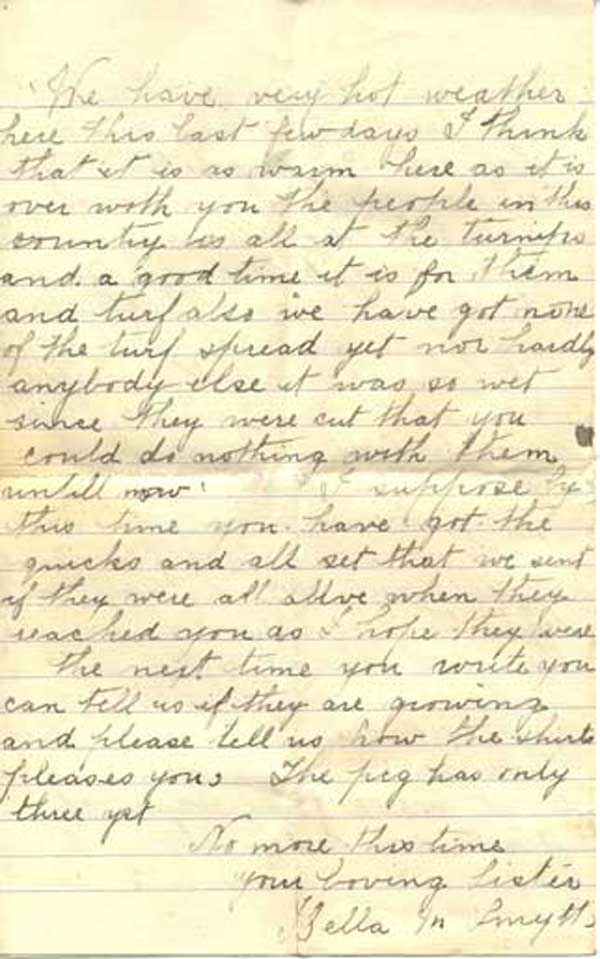 We have very hot weather
here this last few days I think
that it is as warm here as it is
over with you the people in this
country is all at the turnips
and a good time it is for them
and turf also we have got none
of the turf spread yet nor hardly
anybody else it was so wet
since they were cut that you
could do nothing with them
untill now I suppose by
this time you have got the
quicks and all set that we sent
if they were all alive when they
reached you as I hope they were
the next time you write you
can tell us if they are growing
and please tell us how the shirts
pleases you The pig has only
three yet
No more this time
your loving Sister
Bella M Smyth